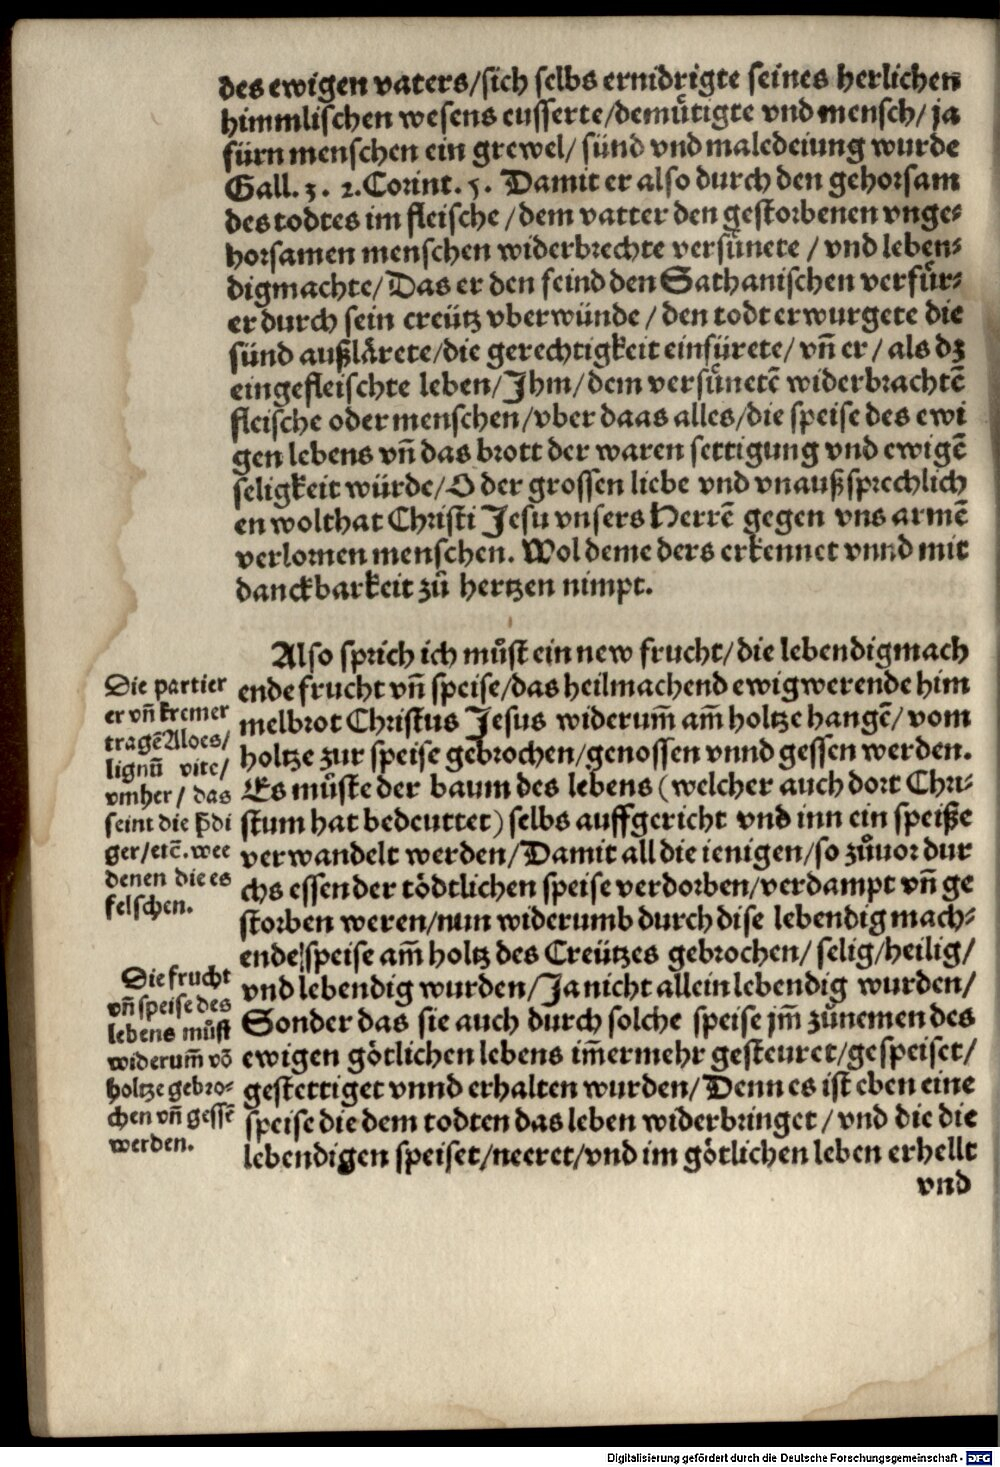 des ewigen vaters/sich selbs ernidrigte seines herlichen
himmlischen wesens eusserte/demuͤtigte vnd mensch/ ja
fürn menschen ein grewel/ sünd vnd maledeiung wurde
Gall. 3. 2. Corint. 5. Damit er also durch den gehorsam
des todtes im fleische/dem vatter den gestorbenen vnge⸗
horsamen menschen widerbrechte versuͤnete / vnd leben⸗
digmachte/Das er den feind den Sathanischen verfuͤr⸗
er durch sein creütz vberwünde / den todt erwurgete die
sünd außlaͤrete/die gerechtigkeit einfürete/ vñ er / als dz
eingefleischte leben/Ihm/dem versuͤnetẽ widerbrachtẽ
fleische oder menschen/vber daas alles/die speise des ewi
gen lebens vñ das brott der waren settigung vnd ewigẽ
seligkeit würde/O der grossen liebe vnd vnaußsprechlich
en wolthat Christi Jesu vnsers Herrẽ gegen vns armẽ
verlornen menschen. Wol deme ders erkennet vnnd mit
danckbarkeit zuͦ hertzen nimpt.
Also sprich ich muͦst ein new frucht/die lebendigmach
ende frucht vñ speise/das heilmachend ewigwerende him
melbrot Christus Jesus widerum̃ am̃ holtze hangẽ/ vom
holtze zur speise gebrochen/genossen vnnd gessen werden.
Es muͦste der baum des lebens (welcher auch dort Chri⸗
stum hat bedeuttet) selbs auffgericht vnd inn ein speiße
verwandelt werden/Damit all die ienigen/so zuͦuor dur
chs essen der tödtlichen speise verdorben/verdampt vñ ge
storben weren/nun widerumb durch dise lebendig mach⸗
ende speise am̃ holtz des Creützes gebrochen/ selig/heilig/
vnd lebendig wurden/Ja nicht allein lebendig wurden/
Sonder das sie auch durch solche speise jm̃ zuͦnemen des
ewigen götlichen lebens im̃ermehr gesteuret/gespeiset/
gestettiget vnnd erhalten wurden/Denn es ist eben eine
speise die dem todten das leben widerbringet / vnd die die
lebendigen speiset/neeret/vnd im götlichen leben erhellt
vnd
Die partier
er vñ kremer
tragẽ Aloes/
lignũ vite/
vmher / das
seint die p̃di
ger/etc̃. wee
denen die es
felschen.
Die frucht
vñ speise des
lebens muͦst
widerum̃ võ
holtze gebro⸗
chen vñ gessẽ
werden.
Digitalisierung gefördert durch die Deutsche Forschungsgemeinschaft - DFG